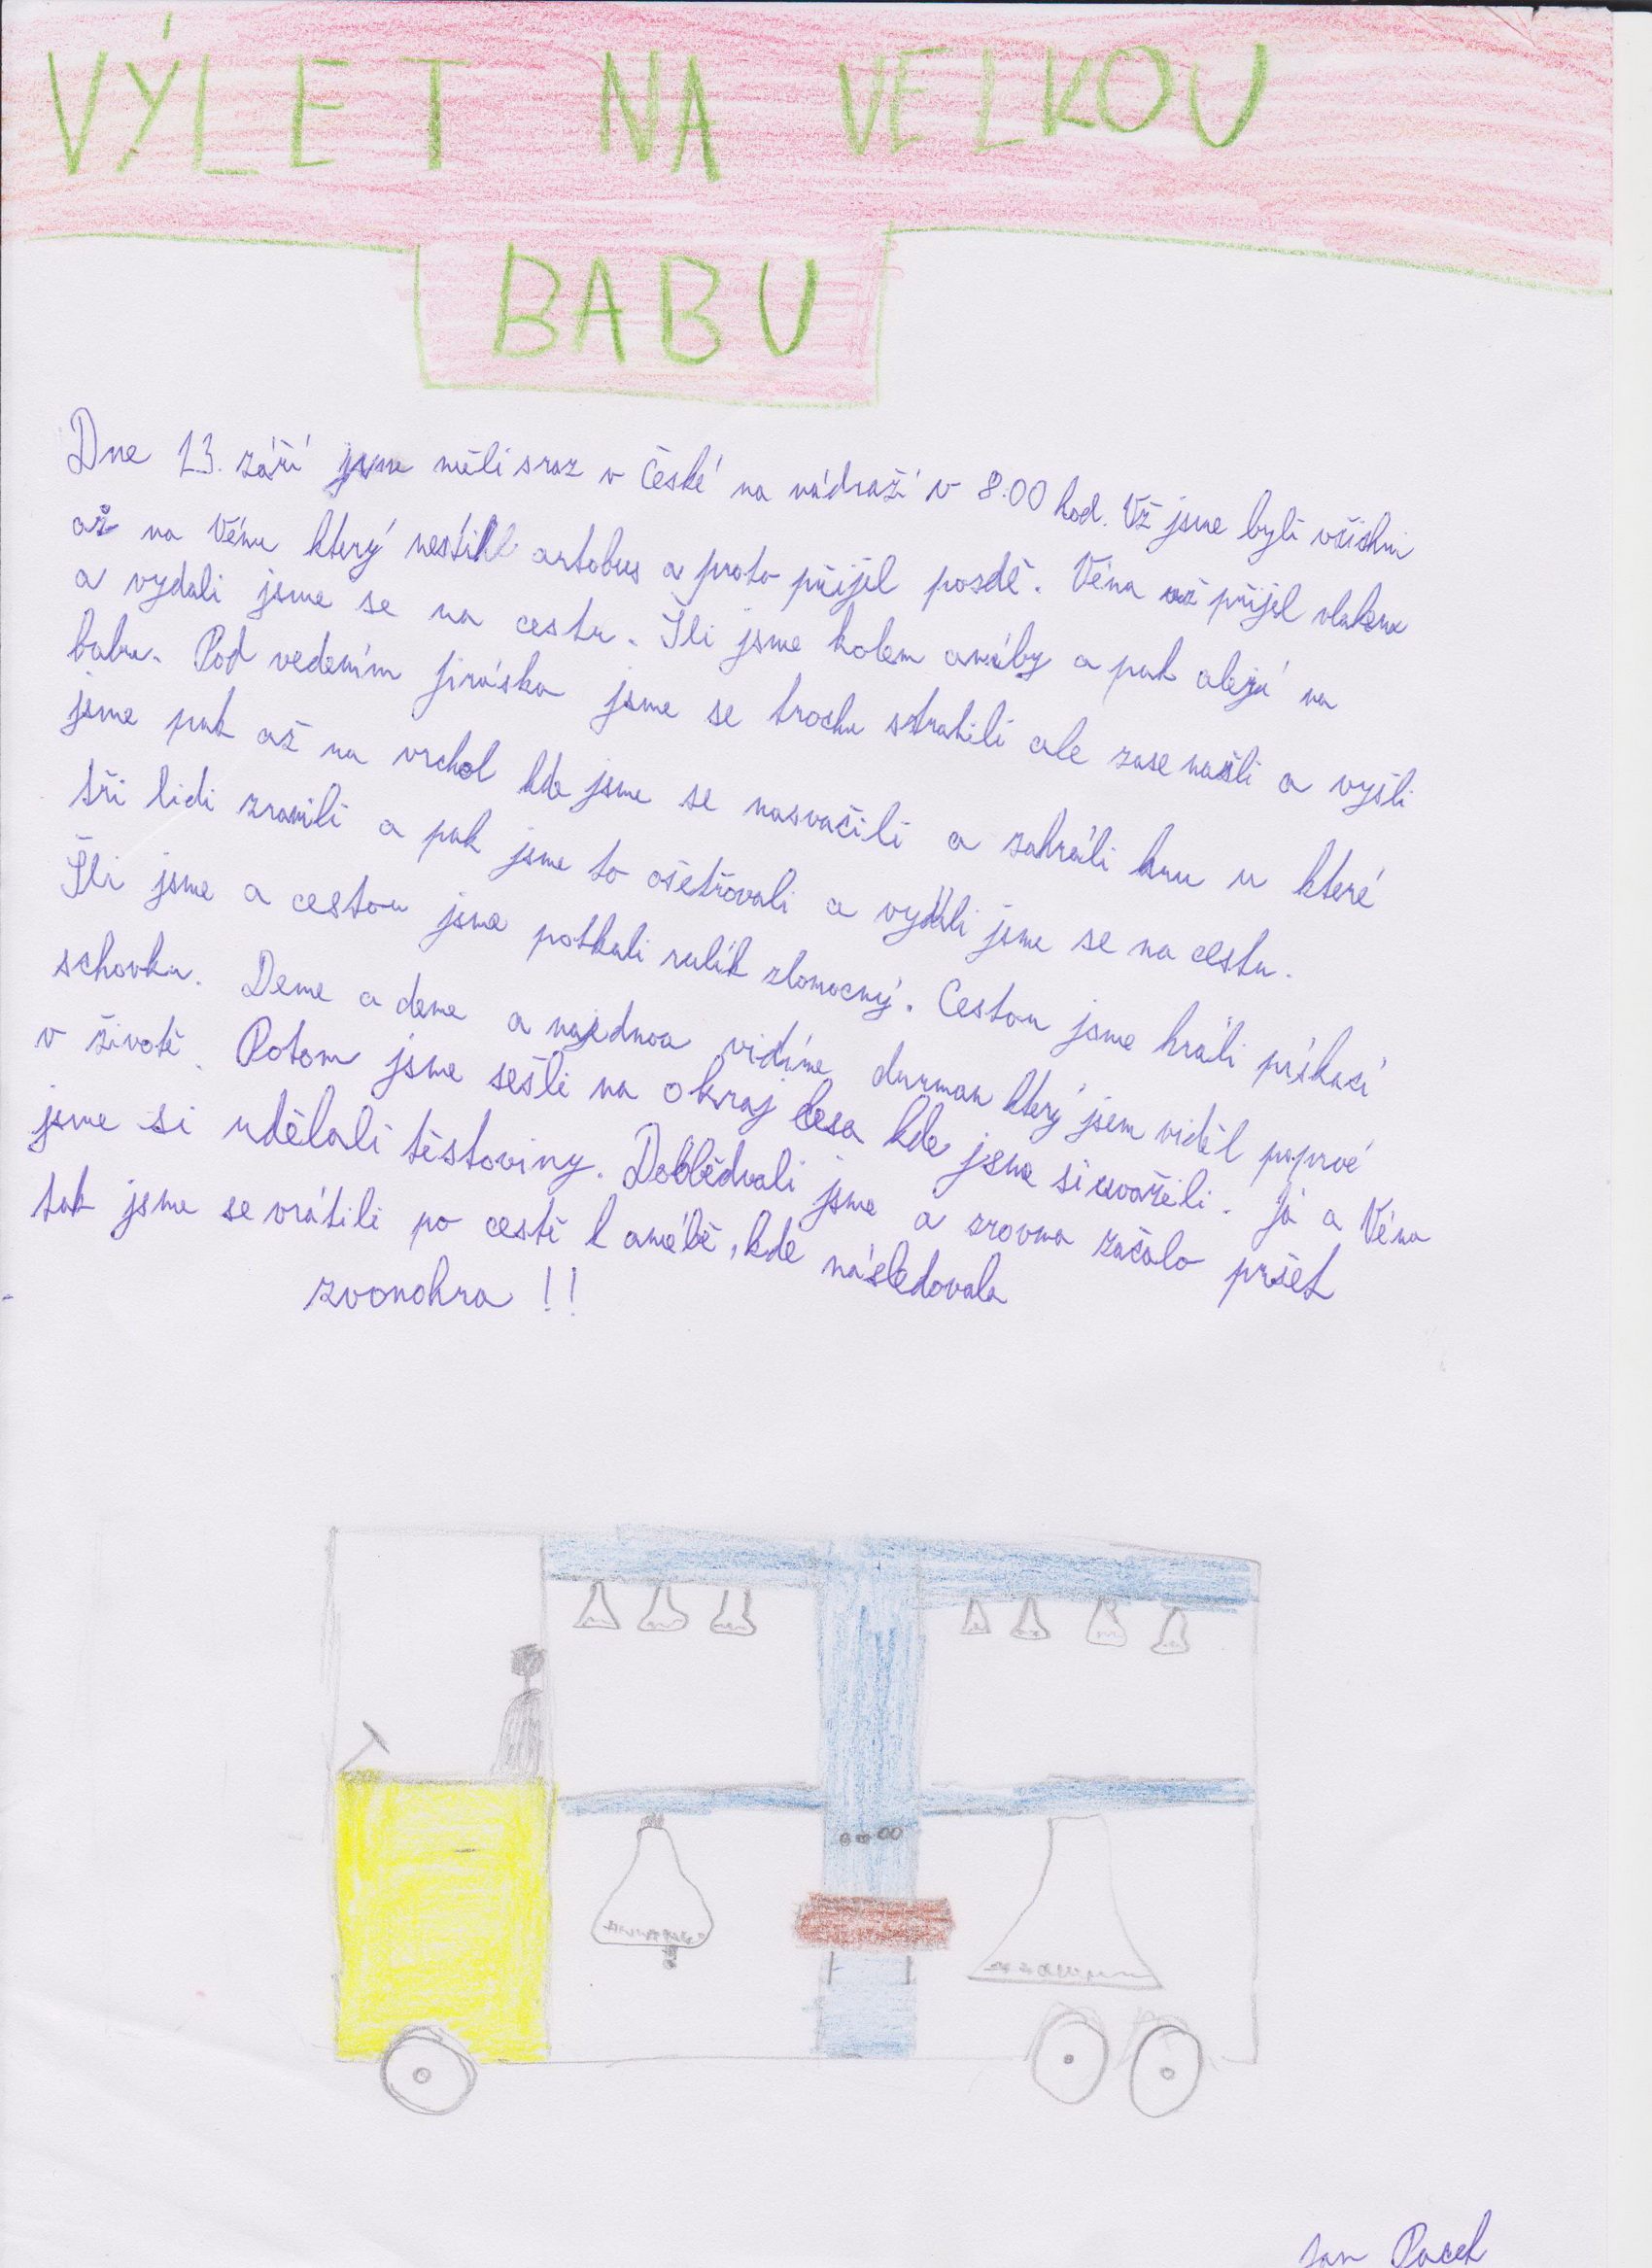 VÝLET NA VELKOU
BABU
Dne 13. září jsme měli sraz v České na nádraží v 8:00 hod. Už jsme byli všichni
až na Vénu který nestihl autobus a proto přijel pozdě. Véna už přijel vlakem
a vydali jsme se na cestu. Šli jsme kolem améby a pak alejí na
babu. Pod vedením jiráska jsme se trochu ztratili ale zase našli a vyšli
jsme pak až na vrchol kde jsme se nasvačili a zahráli hru u které
tři lidi zranili a pak jsme to ošetřovali a vydali jsme se na cestu.
Šli jsme a cestou jsme potkali rulík zlomocný. Cestou jsme hráli pískací
schovku. Deme a deme a najednou vidíme durman který jsem viděl poprvé
v životě. Potom jsme sešli na okraj lesa kde jsme si uvařili. Já a Véna
jsme si udělali těstoviny. Doobědvali jsme a zrovna začalo pršet
tak jsme se vrátili po cestě k amébě, kde následovala
zvonohra !!
Jan Pacek